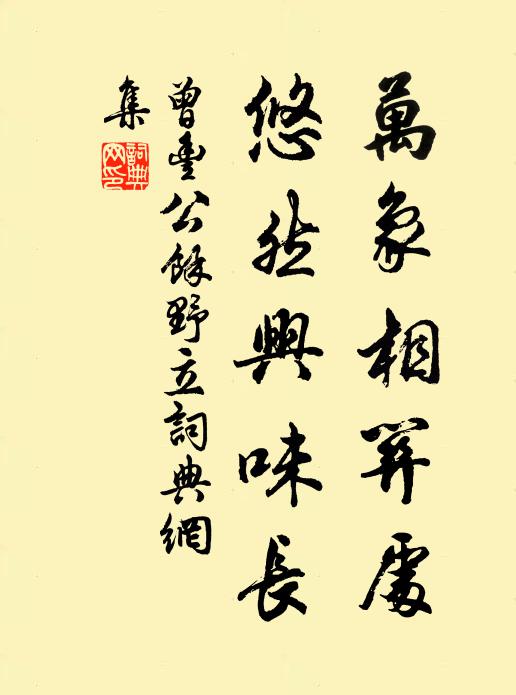 萬象相關處
悠然興味長
曾豐公餘野立詞典網
集
詞典
网印